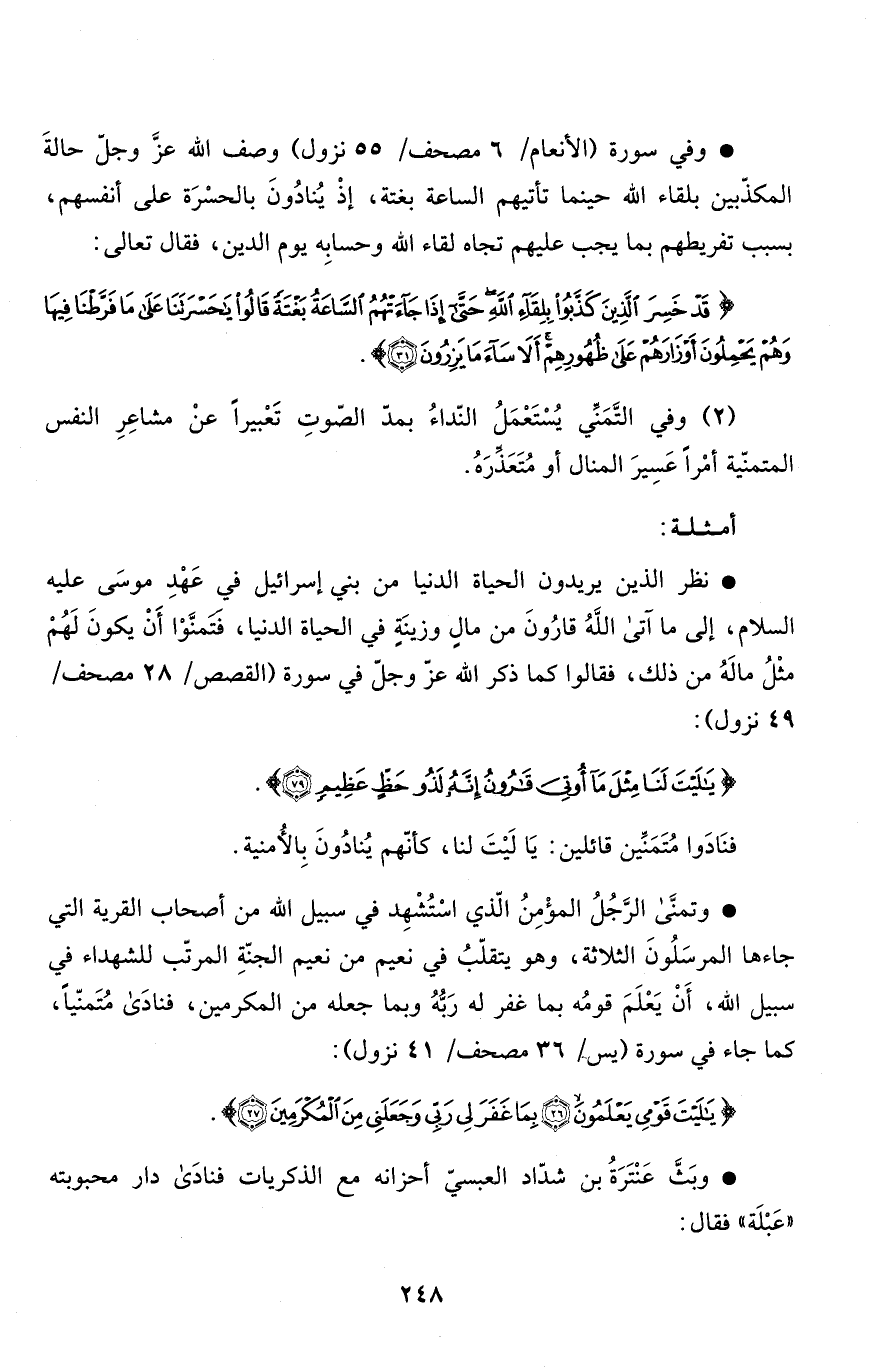 ● وفي سورة (الأنعام/ ٦ مصحف/ ٥٥ نزول) وصف الله عزَّ وجلّ حالةَ
المكذّبين بلقاء الله حينما تأتيهم الساعة بغتة، إذْ يُنادُونَ بالحسْرَة على أنفسهم،
بسبب تفريطهم بما يجب عليهم تجاه لقاء الله وحسابِه يوم الدين، فقال تعالى:
﴿ قَدْ خَسِرَ ٱلَّذِينَ كَذَّبُوا۟ بِلِقَآءِ ٱللَّهِ ۖ حَتَّىٰٓ إِذَا جَآءَتْهُمُ ٱلسَّاعَةُ بَغْتَةً قَالُوا۟ يَٰحَسْرَتَنَا عَلَىٰ مَا فَرَّطْنَا فِيهَا
وَهُمْ يَحْمِلُونَ أَوْزَارَهُمْ عَلَىٰ ظُهُورِهِمْ ۚ أَلَا سَآءَ مَا يَزِرُونَ ٣١﴾.
(٢) وفي التَّمَنِّي يُسْتَعْمَلُ النّداءُ بمدّ الصّوتِ تَعْبيراً عنْ مشاعِرِ النفس
المتمنّية أمْراً عَسِيرَ المنال أو مُتَعَذِّرَهُ.
أمـثـلـة:
● نظر الذين يريدون الحياة الدنيا من بني إسرائيل في عَهْدِ موسَى عليه
السلام، إلى ما آتىٰ اللَّهُ قارُونَ من مالٍ وزينَةٍ في الحياة الدنيا، فَتَمنَّوْا أَنْ يكونَ لَهُمْ
مثْلُ مالَهُ من ذلك، فقالوا كما ذكر الله عزّ وجلّ في سورة (القصص/ ٢٨ مصحف/
٤٩ نزول):
﴿ يَٰلَيْتَ لَنَا مِثْلَ مَآ أُوتِىَ قَٰرُونُ إِنَّهُۥ لَذُو حَظٍّ عَظِيمٍ ٧٩﴾.
فنَادَوا مُتَمَنِّين قائلين: يَا لَيْتَ لنا، كأنّهم يُنادُونَ بِالأُمنية.
● وتمنَّىٰ الرَّجُلُ المؤْمِنُ الّذي اسْتُشْهِد في سبيل الله من أصحاب القرية التي
جاءها المرسَلُونَ الثلاثة، وهو يتقلّبُ في نعيم من نعيم الجنّةِ المرتّب للشهداء في
سبيل الله، أَنْ يَعْلَمَ قومُه بما غفر له رَبُّهُ وبما جعله من المكرمين، فنادَىٰ مُتَمنّياً،
كما جاء في سورة (يس/ ٣٦ مصحف/ ٤١ نزول):
﴿ يَٰلَيْتَ قَوْمِى يَعْلَمُونَ ۙ ٢٦ بِمَا غَفَرَ لِى رَبِّى وَجَعَلَنِى مِنَ ٱلْمُكْرَمِينَ ٢٧﴾.
● وبَثَّ عَنْتَرَةُ بن شدّاد العبسيّ أحزانه مع الذكريات فنادَىٰ دار محبوبته
«عَبْلَة» فقال:
٢٤٨